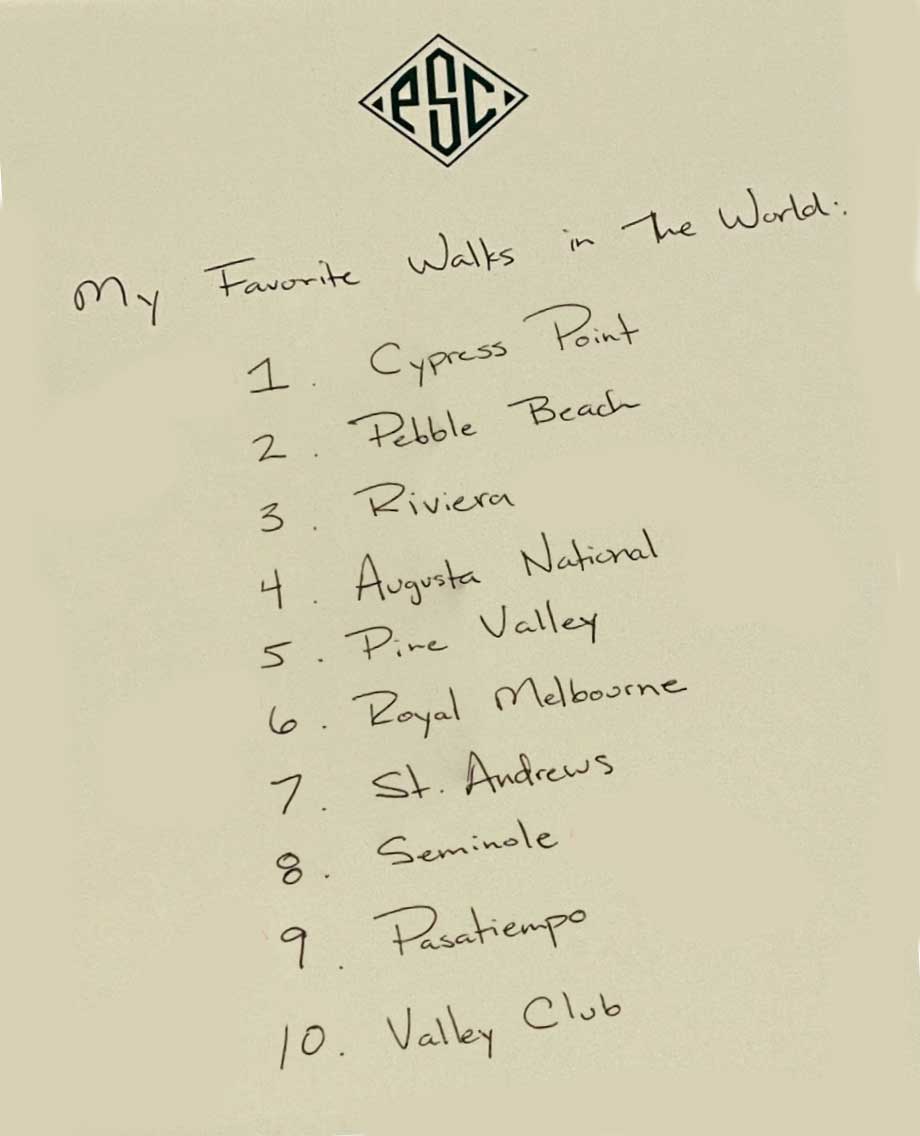 PSC
My Favorite Walks in The World:
1. Cypress Point
2. Pebble Beach
3. Riviera
4. Augusta National
5. Pine Valley
6. Royal Melbourne
7. St. Andrews
8. Seminole
9. Pasatiempo
10. Valley Club